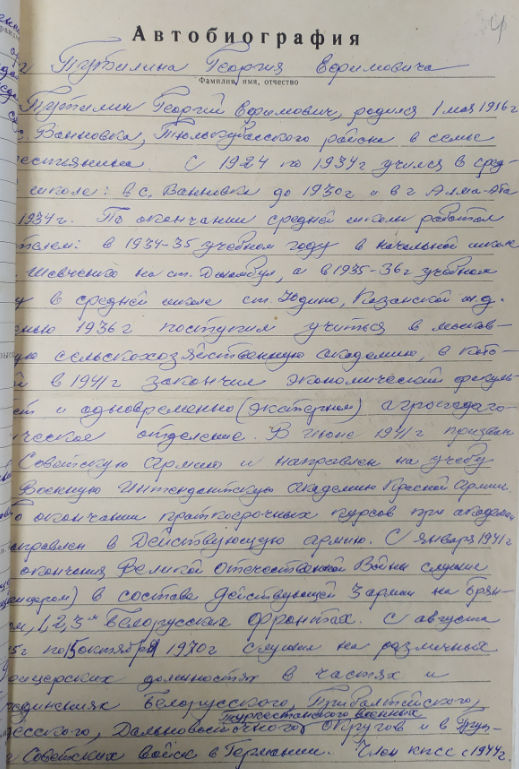 Автобиография
Путилина Георгия Ефимовича
Фамилия, имя, отчество
Путилин Георгий Ефимович, родился 1 мая 1916 г
Ванновка, Тюлькубасского района в семье
естьянина. С 1924 по 1934г учился в сред-
школе: в с. Ванновка до 1930г и в г Алма-Ата
1934г. По окончании средней школы работал
телем: в 1934-35 учебном году в начальной школе
Шевченко на ст. Джамбул, а в 1935-36г учебном
у в средней школе ст. Юдино, Казанской ж.д.
нью 1936г поступил учиться в москов-
ую сельскохозяйственную академию, в кото-
й в 1941г закончил экономический факуль-
ет и одновременно (экстерном) агропедаго-
ическое отделение. В июне 1941г призван
Советскую Армию и направлен на учебу
Военную Интендантскую академию Красной Армии.
о окончании краткосрочных курсов при академии
правлен в Действующую армию. С января 1941г
окончания Великой Отечественной Войны служил
в составе действующей 3 армии на Брян-
ом, 1, 2, 3м Белорусских фронтах. С августа
5г по 15 октября 1970г служил на различных
ицерских должностях в частях и
единениях Белорусского, Прибалтийского,
Туркестанского военных
есского, Дальневосточного округов и в Груп-
Советских войск в Германии. Член КПСС с 1944г.